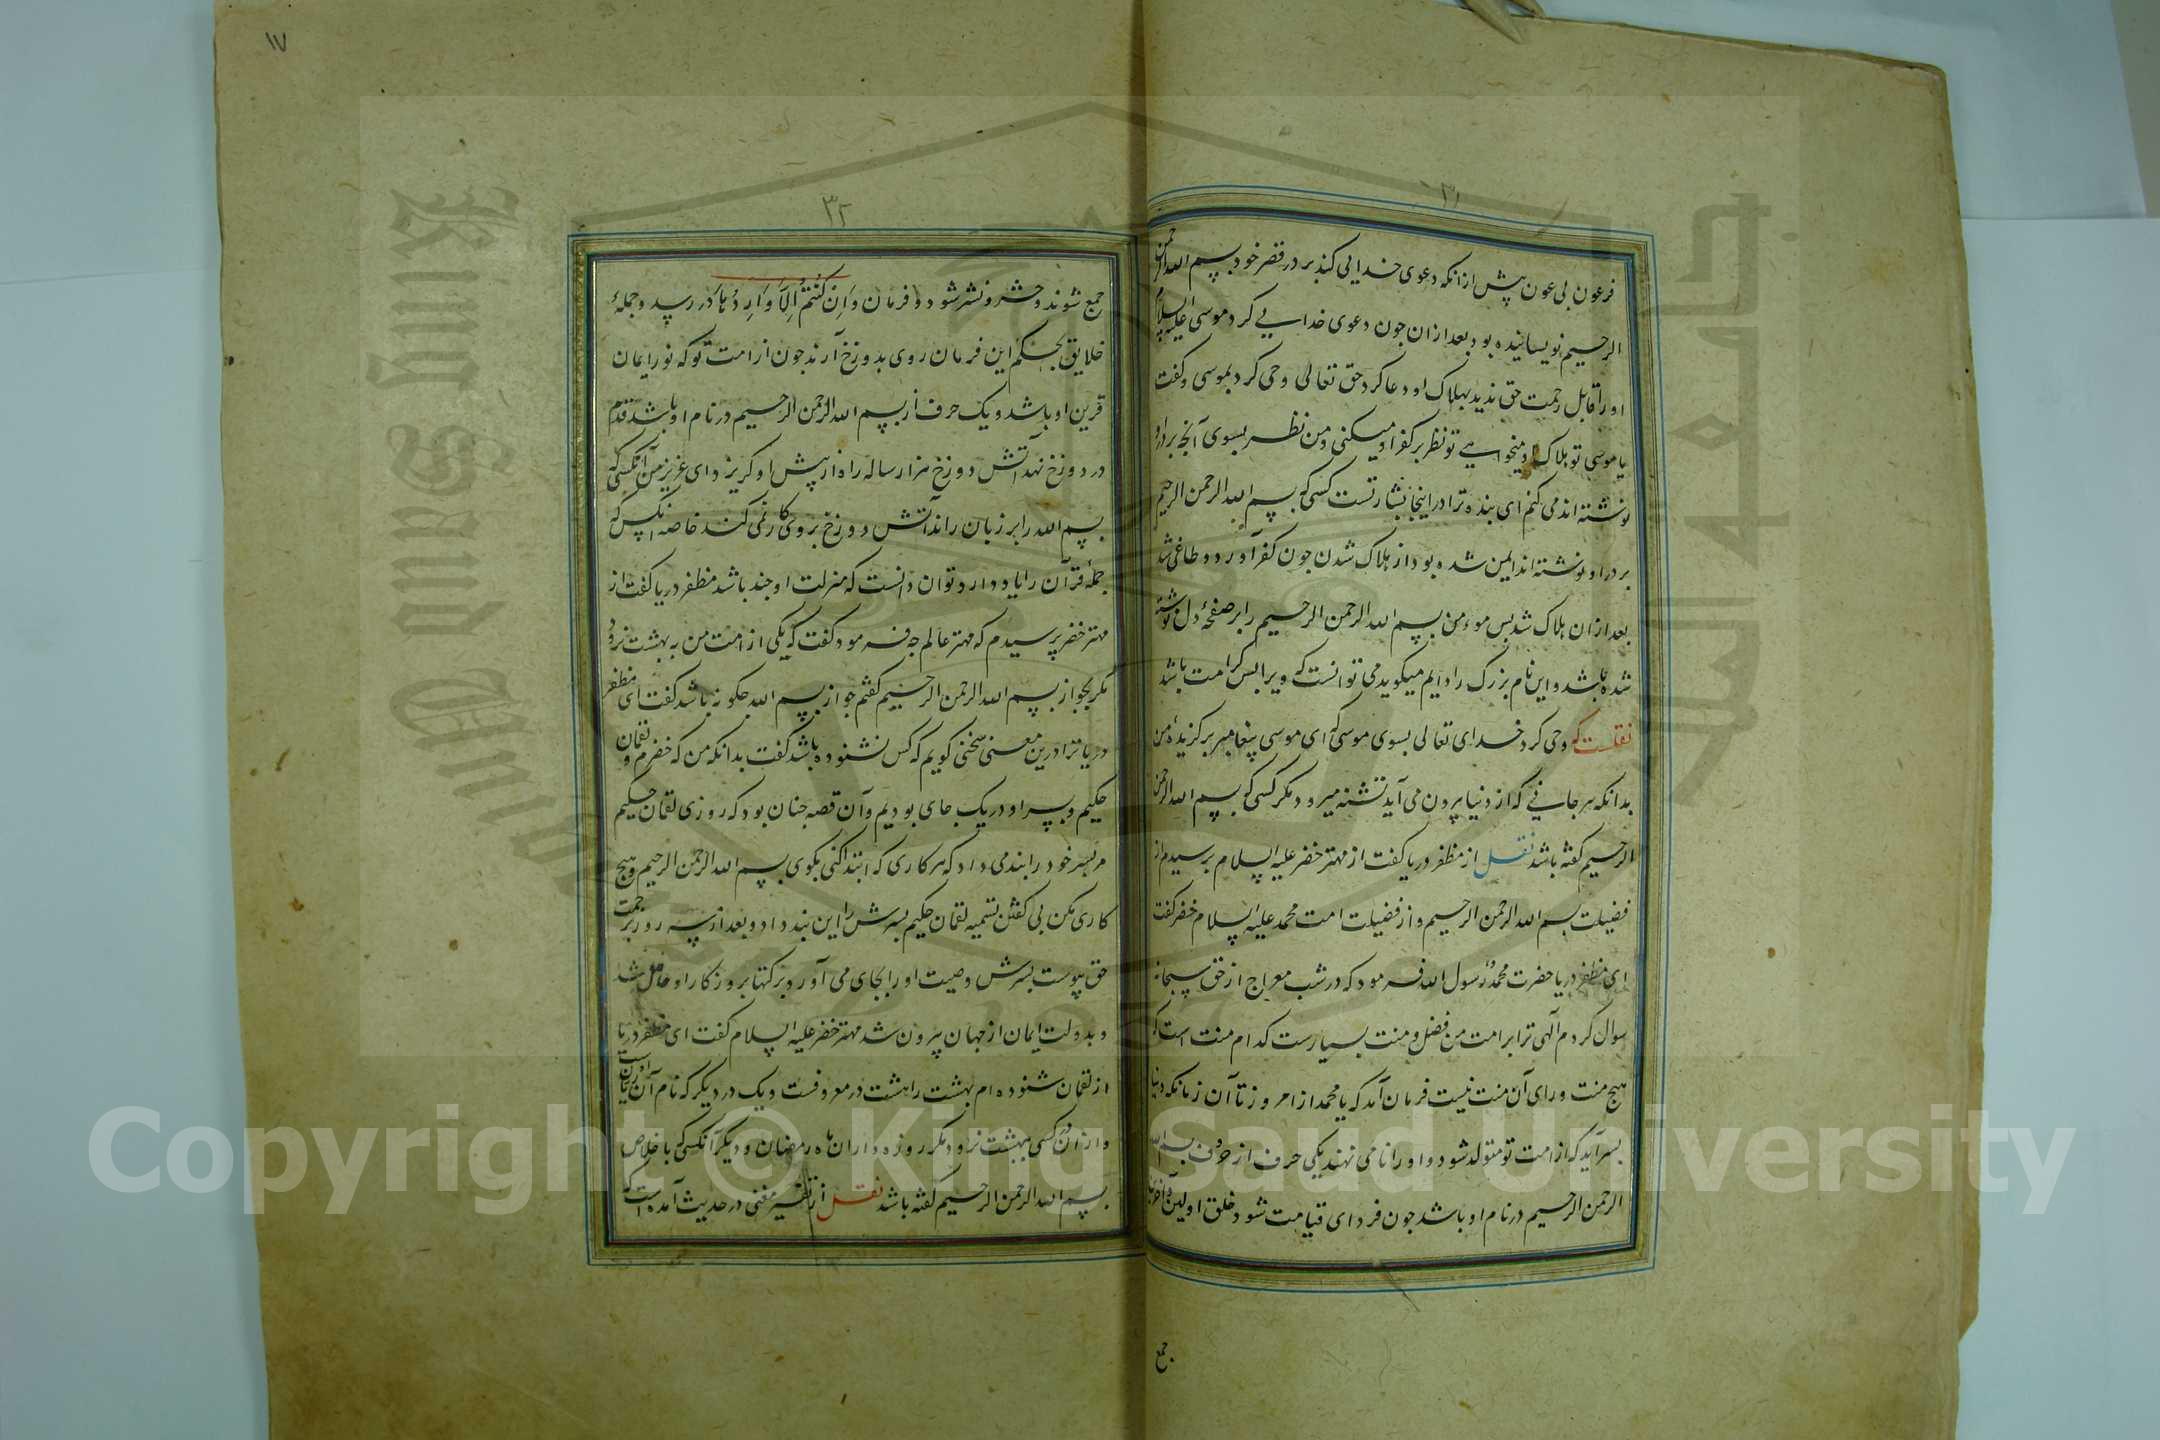 ٣١
فرعون بی عون پیش ازانکه دعوی خدایی کند بر در قصر خود بسم الله الرحمن
الرحیم نویسانیده بود بعد ازان جون دعوی خدایی کرد موسی علیه السلام
اورا قابل رحمت حق ندید بهلاک او دعا کرد حق تعالی وحی کرد بموسی و گفت
یا موسی تو هلاک او میخواهی تو نظر بر کفر او میکنی و من نظر بسوی آنچه بر در او
نوشته اند می کنم ای بنده ترا در اینجا بشارتست کسی که بسم الله الرحمن الرحیم
بر در او نوشته اند ایمن شده بود از هلاک شدن جون کفر آورد و طاغی شد
بعد ازان هلاک شد پس مومن بسم الله الرحمن الرحیم را بر صفحهٔ دل نوشته
شده باشد و این نام بزرگ را دایم میکوید می توانست که ویرا بس کرامت باشد
نقلست که وحی کرد خدای تعالی بسوی موسی که ای موسی پیغامبر برکزیدهٔ من
بدانکه هر جانی که از دنیا بیرون می آید تشنه میرود مکر کسی که بسم الله الرحمن
الرحیم کفته باشد نقل از مظفر دریا کفت از مهتر خضر علیه السلام پرسیدم از
فضیلت بسم الله الرحمن الرحیم و از فضیلت امت محمد علیه السلام خضر کفت
ای مظفر دریا حضرت محمد رسول الله فرمود که در شب معراج از حق سبحانه
سوال کردم آلهی ترا بر امت من فضل و منت بسیارست کدام منت است که
هیج منت ورای آن منت نیست فرمان آمد که یا محمد از امروز تا آن زمانکه دنیا
بسر آید که از امت تو متولد شود و اورا نامی نهند یکی حرف از حروف بسم الله
الرحمن الرحیم در نام او باشد جون فردای قیامت شود خلق اولین و آخرین
جمع
١٧
٣٢
جمع شوند و حشر و نشر شود و فرمان وَاِن مِنْکُمْ اِلَّا وَارِدُهَا در رسد و جملهٔ
خلایق بحکم این فرمان روی بدوزخ آرند جون از امت تو که نور ایمان
قرین او باشد و یک حرف از بسم الله الرحمن الرحیم در نام او باشد قدم
در دوزخ نهد آتش دوزخ هزار ساله راه از پیش او کریزد ای عزیز من آنکسی که
بسم الله را بر زبان راند آتش دوزخ بر وی کار نمی کند خاصه آنکس که
جملهٔ قرآن را یاد دارد توان دانست که منزلت او جند باشد مظفر دریا کفت از
مهتر خضر پرسیدم که مهتر عالم جه فرمود کفت که یکی از امت من به بهشت نرود
مکر بجواز بسم الله الرحمن الرحیم کفتم جواز بسم الله جکونه باشد کفت ای مظفر
دریا ترا درین معنی سخنی کویم که کس نشنوده باشد کفت بدانکه من که خضرم و لقمان
حکیم و پسر او در یک جای بودیم و آن قصه جنان بود که روزی لقمان حکیم
مر پسر خود را پند می داد که هر کاری که ابتدا کنی بکوی بسم الله الرحمن الرحیم و هیج
کاری مکن بی کفتن تسمیه لقمان حکیم پسرش را این پند داد و بعد از سه روز برحمت
حق پیوست پسرش وصیت او را بجای می آورد برکتها بروزکار او حاصل شد
و بدولت ایمان از جهان بیرون شد مهتر خضر علیه السلام کفت ای مظفر دریا
از لقمان شنوده ام بهشت را هشت در معروفست و یک در دیکر که نام آن ریان است
و از آن در کسی ببهشت نرود مکر روزه داران ماه رمضان و دیکر آنکسی که باخلاص
بسم الله الرحمن الرحیم کفته باشد نقل از تفسیر مغنی در حدیث آمده است که
Copyright © King Saud University